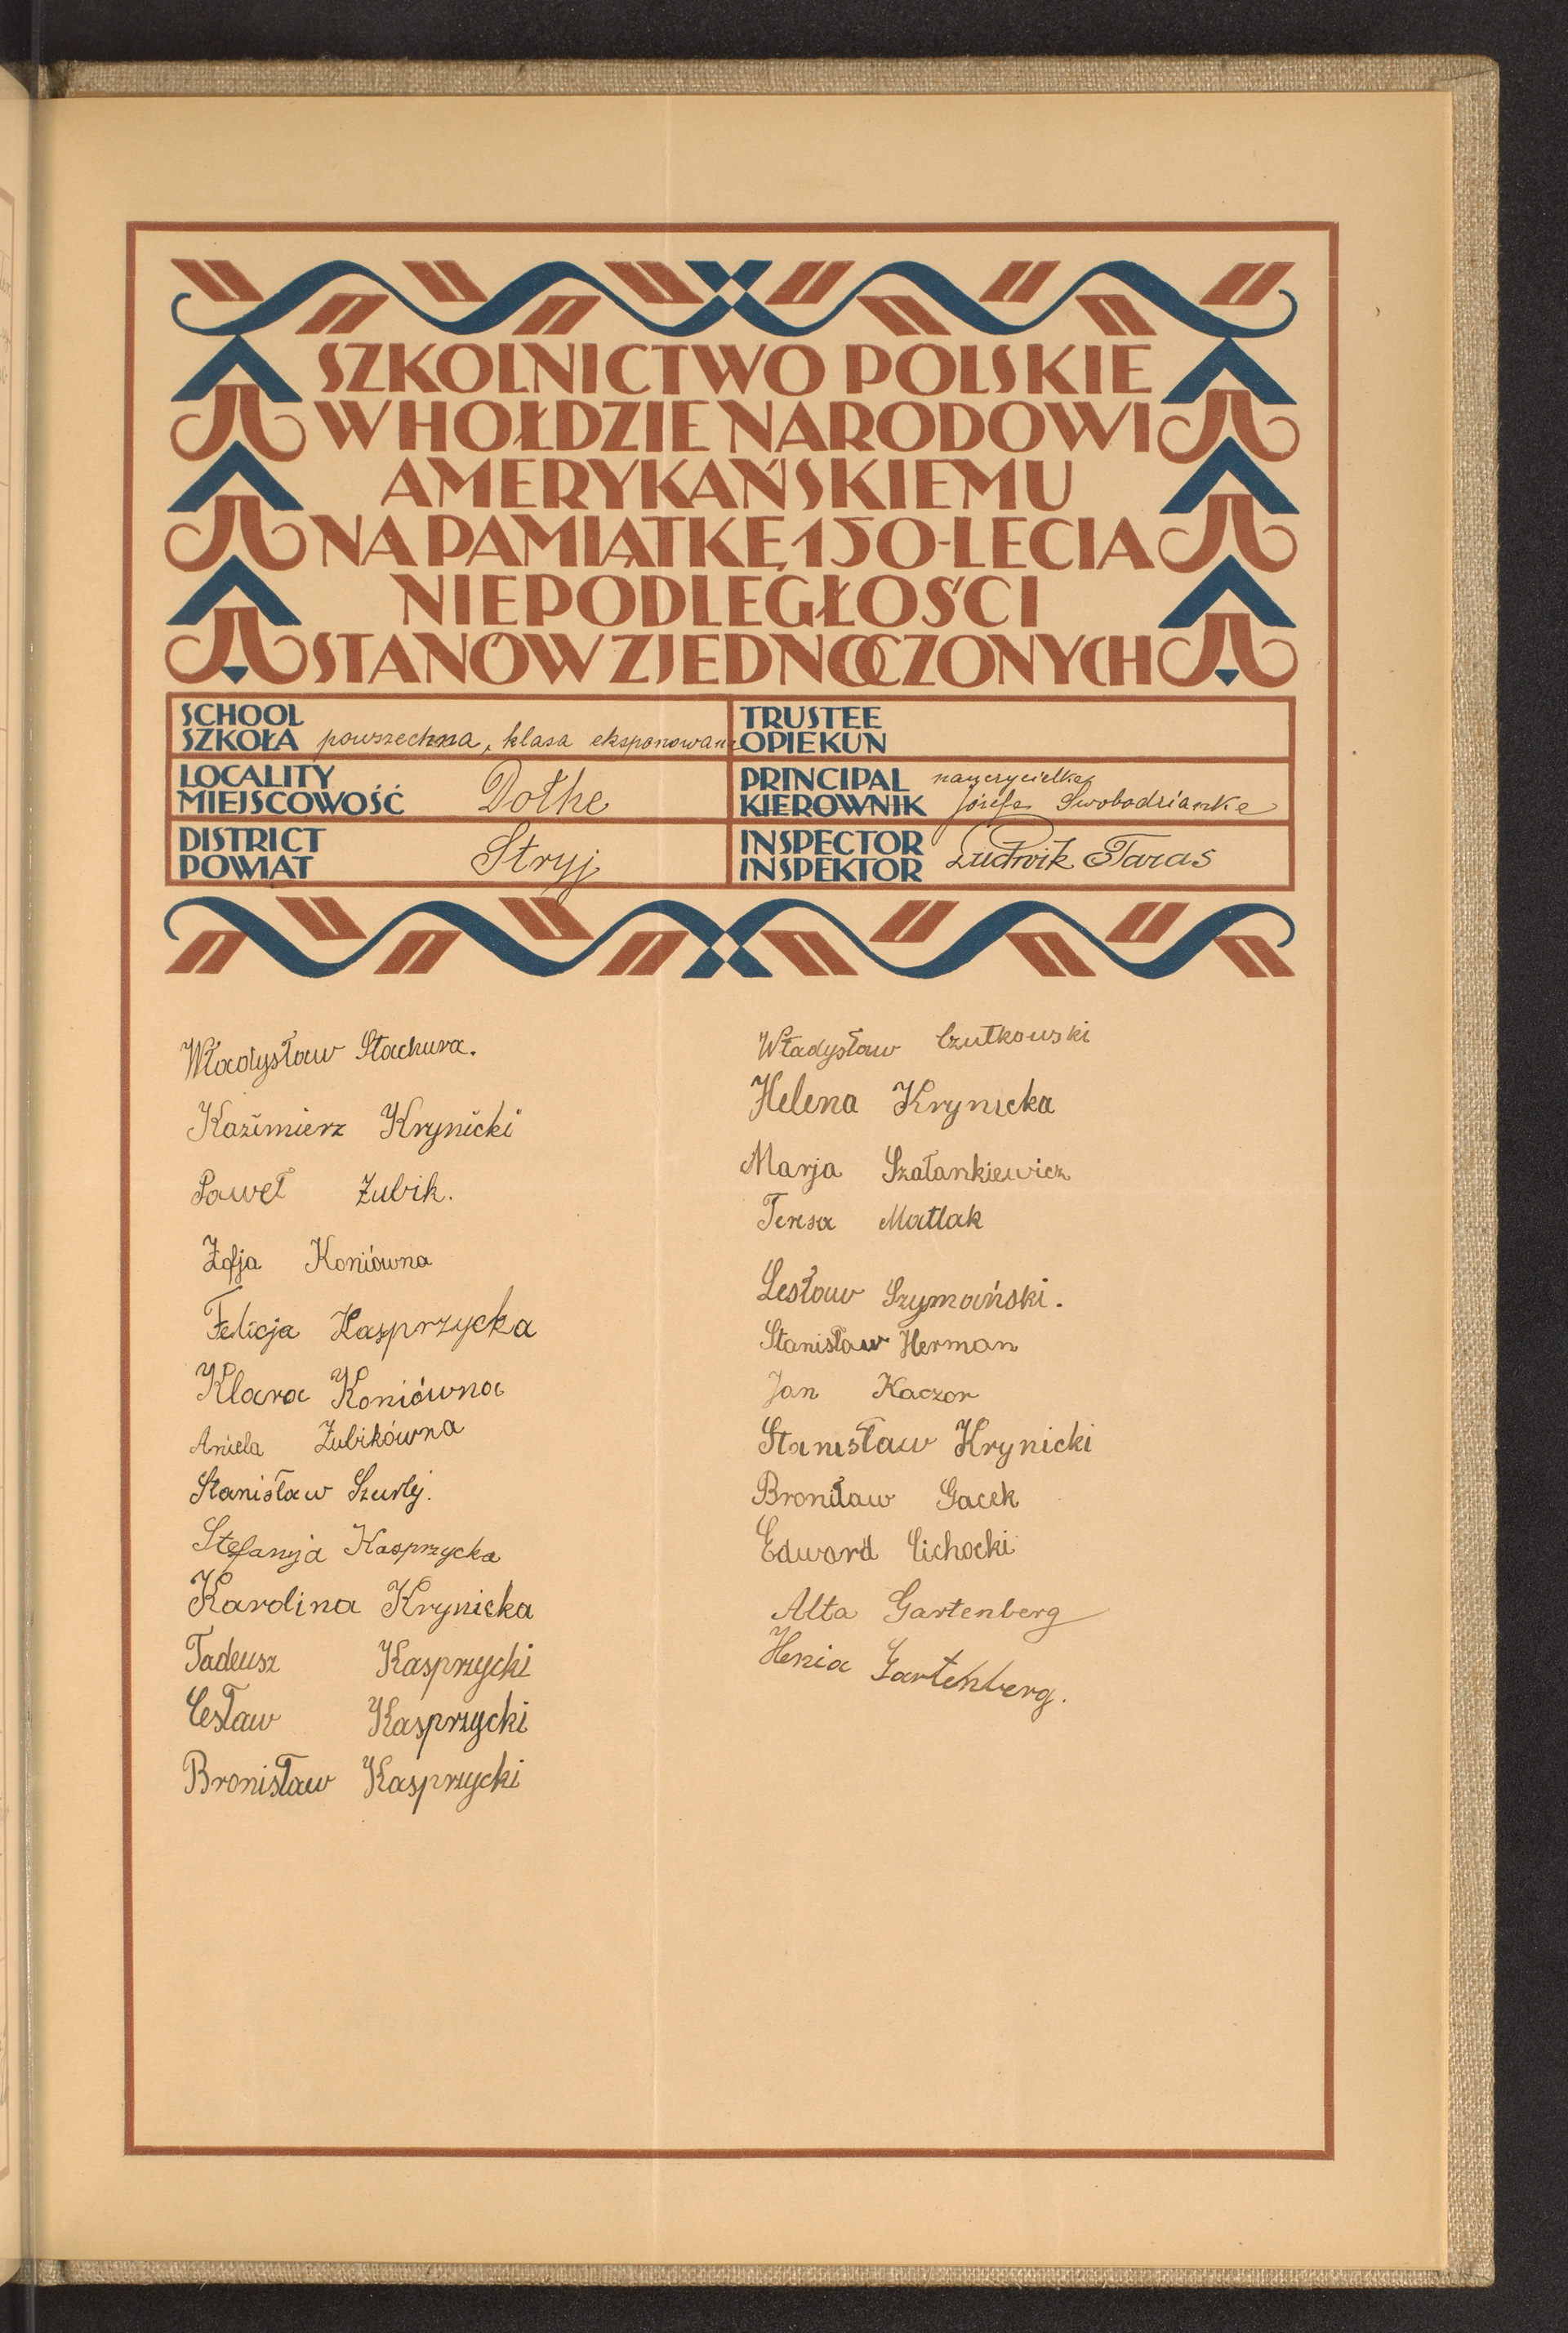 SZKOLNICTWO POLSKIE
W HOŁDZIE NARODOWI
AMERYKAŃSKIEMU
NA PAMIĄTKĘ 150-LECIA
NIEPODLEGŁOŚCI
STANÓW ZJEDNOCZONYCH
SCHOOL
SZKOŁA powszechna, klasa eksponowana
LOCALITY
MIEJSCOWOŚĆ Dołhe
DISTRICT
POWIAT Stryj
TRUSTEE
OPIEKUN
PRINCIPAL nauczycielka
KIEROWNIK Józefa Swobodzianka
INSPECTOR
INSPEKTOR Ludwik Taras
Władysław Stachura.
Kazimierz Krynicki
Paweł Zubik.
Zofja Koniówna
Felicja Kasprzycka
Klara Koniówna
Aniela Zubikówna
Stanisław Szurlej.
Stefanija Kasprzycka
Karolina Krynicka
Tadeusz Kasprzycki
Cesław Kasprzycki
Bronisław Kasprzycki
Władysław Czutkowski
Helena Krynicka
Marja Szałankiewicz
Teresa Matlak
Lesław Szymański.
Stanisław Herman
Jan Kaczor
Stanisław Krynicki
Bronisław Gacek
Edward Cichocki
Alta Gartenberg
Henia Gartenberg.